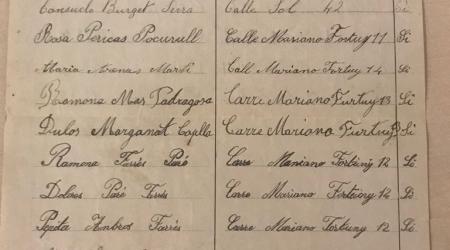 Consuelo Burget Serra Calle Sol 42 Si
Rosa Pericas Pocurull Calle Mariano Fortuy 11 Si
Maria Arenas Martí Call Mariano Fortuy 14 Si
Ramona Mas Padragosa Carre Mariano Furtuy 13 Si
Dulos Marganat Caplla Carre Mariano Furtuy Si
Ramona Torrés Paré Carre Mariano Fortuny 12 Si
Dolores Paré Torrés Carre Mariano Fortuny 14 Si
Pepita Ambros Farrés Carre Mariano Fortuny 12 Si